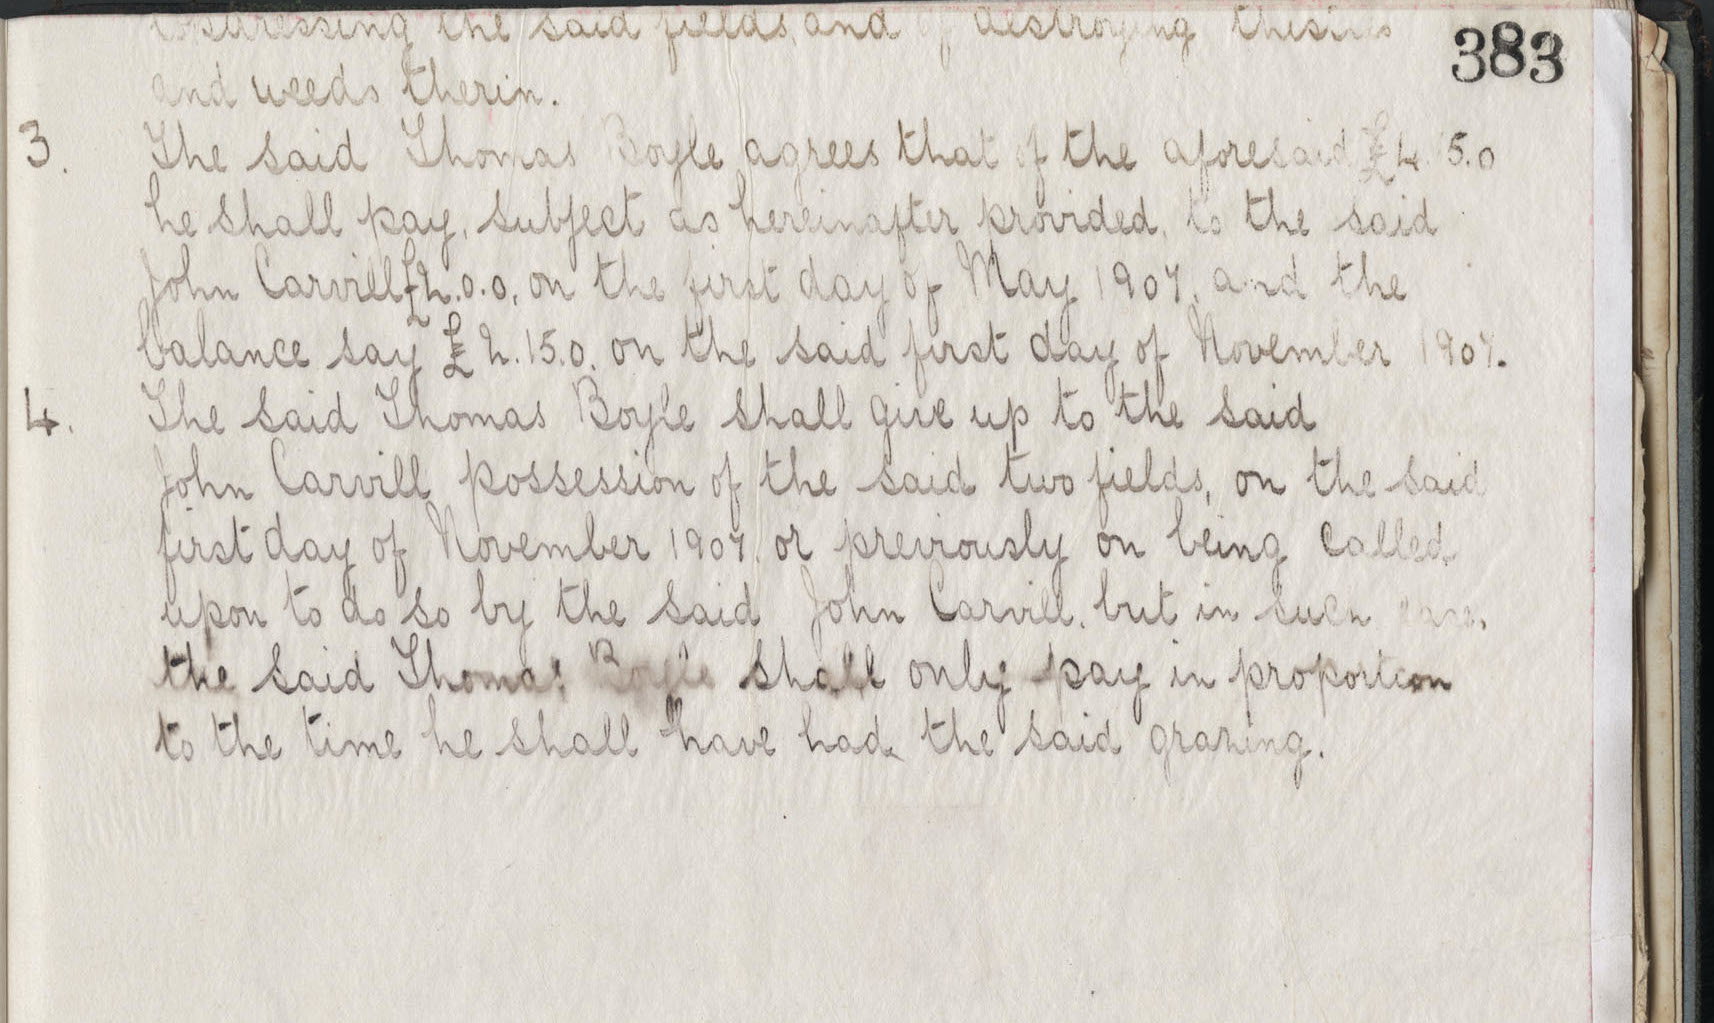 383
the said fields, and of destroying
and weeds therin.
3. The said Thomas Boyle agrees that of the aforesaid £4.15.0
he shall pay, subject as hereinafter provided, to the said
John Carvill £2.0.0, on the first day of May 1907, and the
balance say £2.15.0. on the said first day of November 1907.
4. The said Thomas Boyle shall give up to the said
John Carvill possession of the said two fields, on the said
first day of November 1907. or previously on being called
upon to do so by the said John Carvill. but in such case,
the said Thomas Boyle shall only pay in proportion
to the time he shall have had the said grazing.